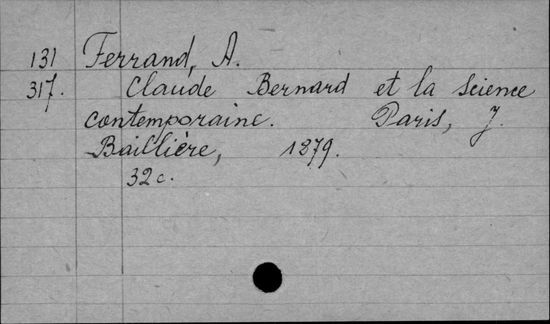 131 Ferrand, A.
317. Claude Bernard et la science
contemporaine. Paris, J.
Baillière, 1879.
32 c.